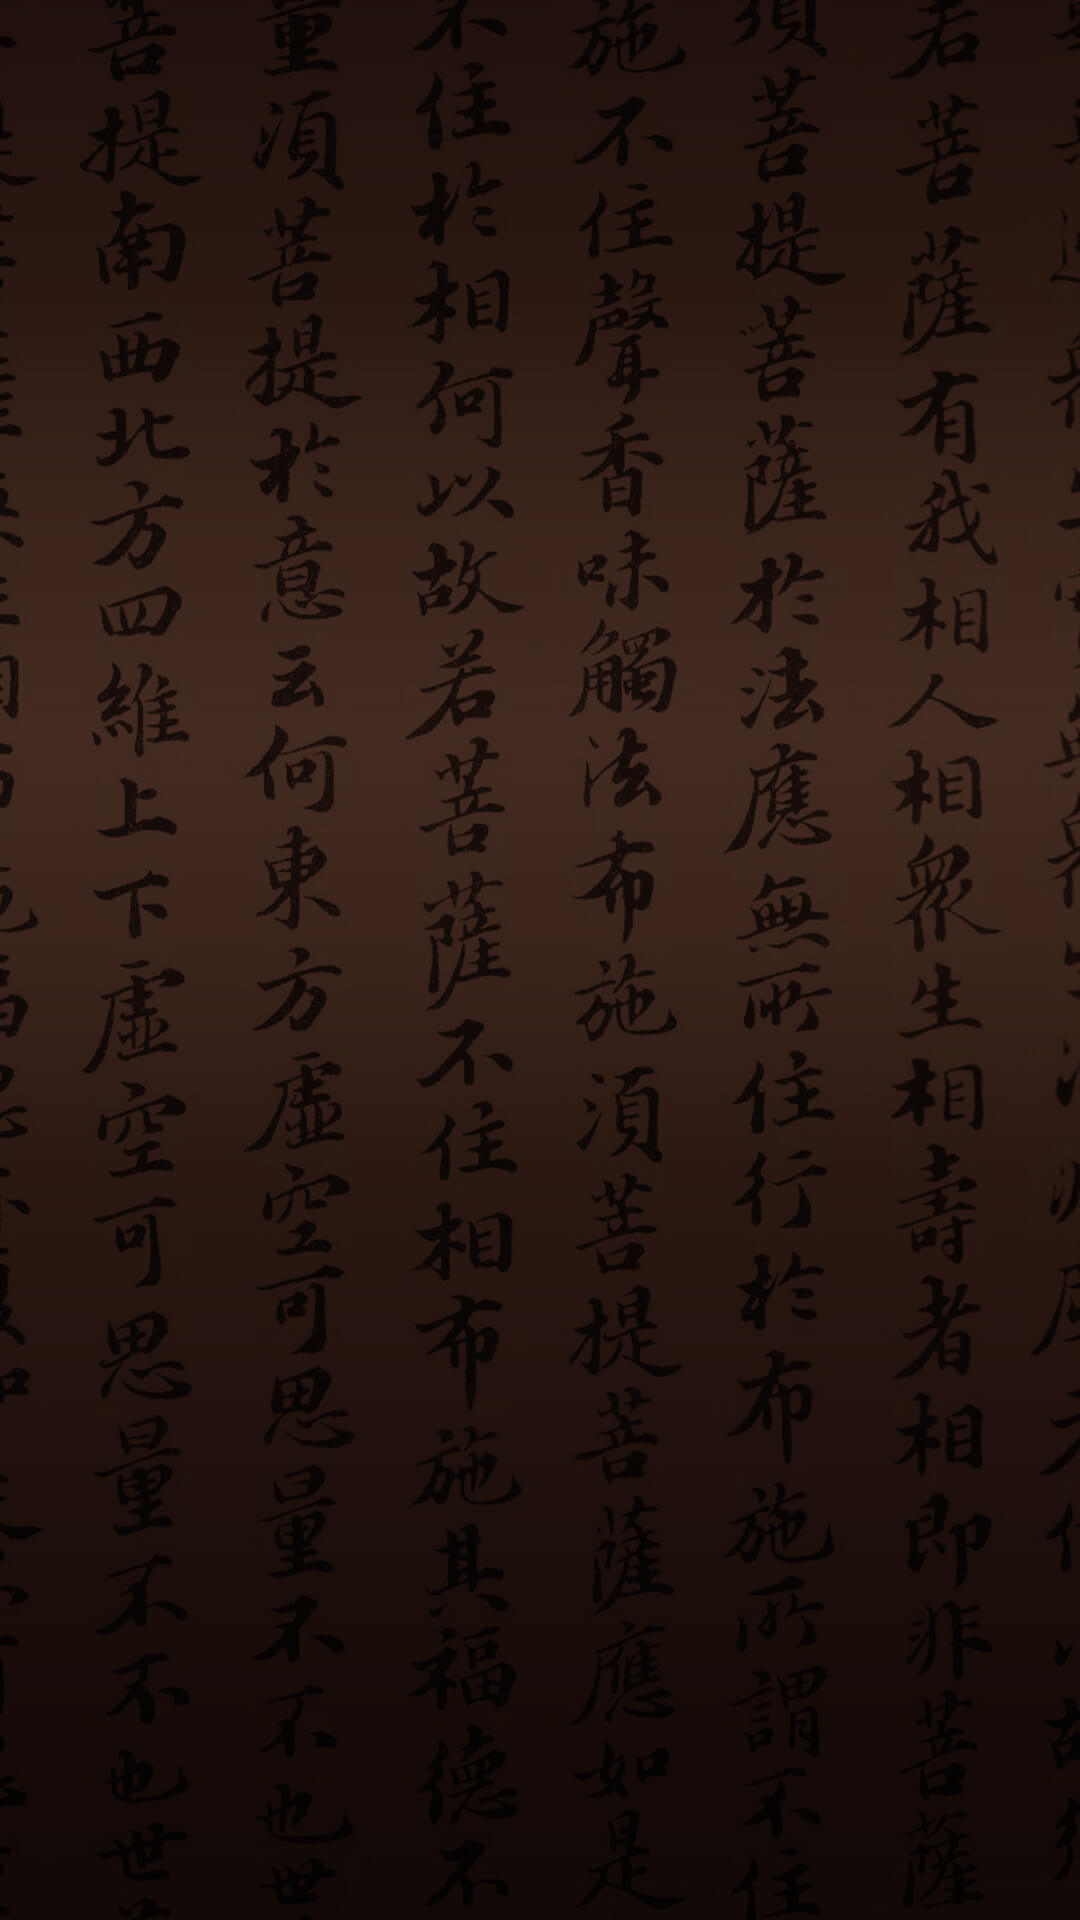 若菩薩有我相人相眾生相壽者相即非菩薩
須菩提菩薩於法應無所住行於布施所謂不住
施不住聲香味觸法布施須菩提菩薩應如是
不住於相何以故若菩薩不住相布施其福德不
量須菩提於意云何東方虛空可思量不不也世
菩提南西北方四維上下虛空可思量不不也世